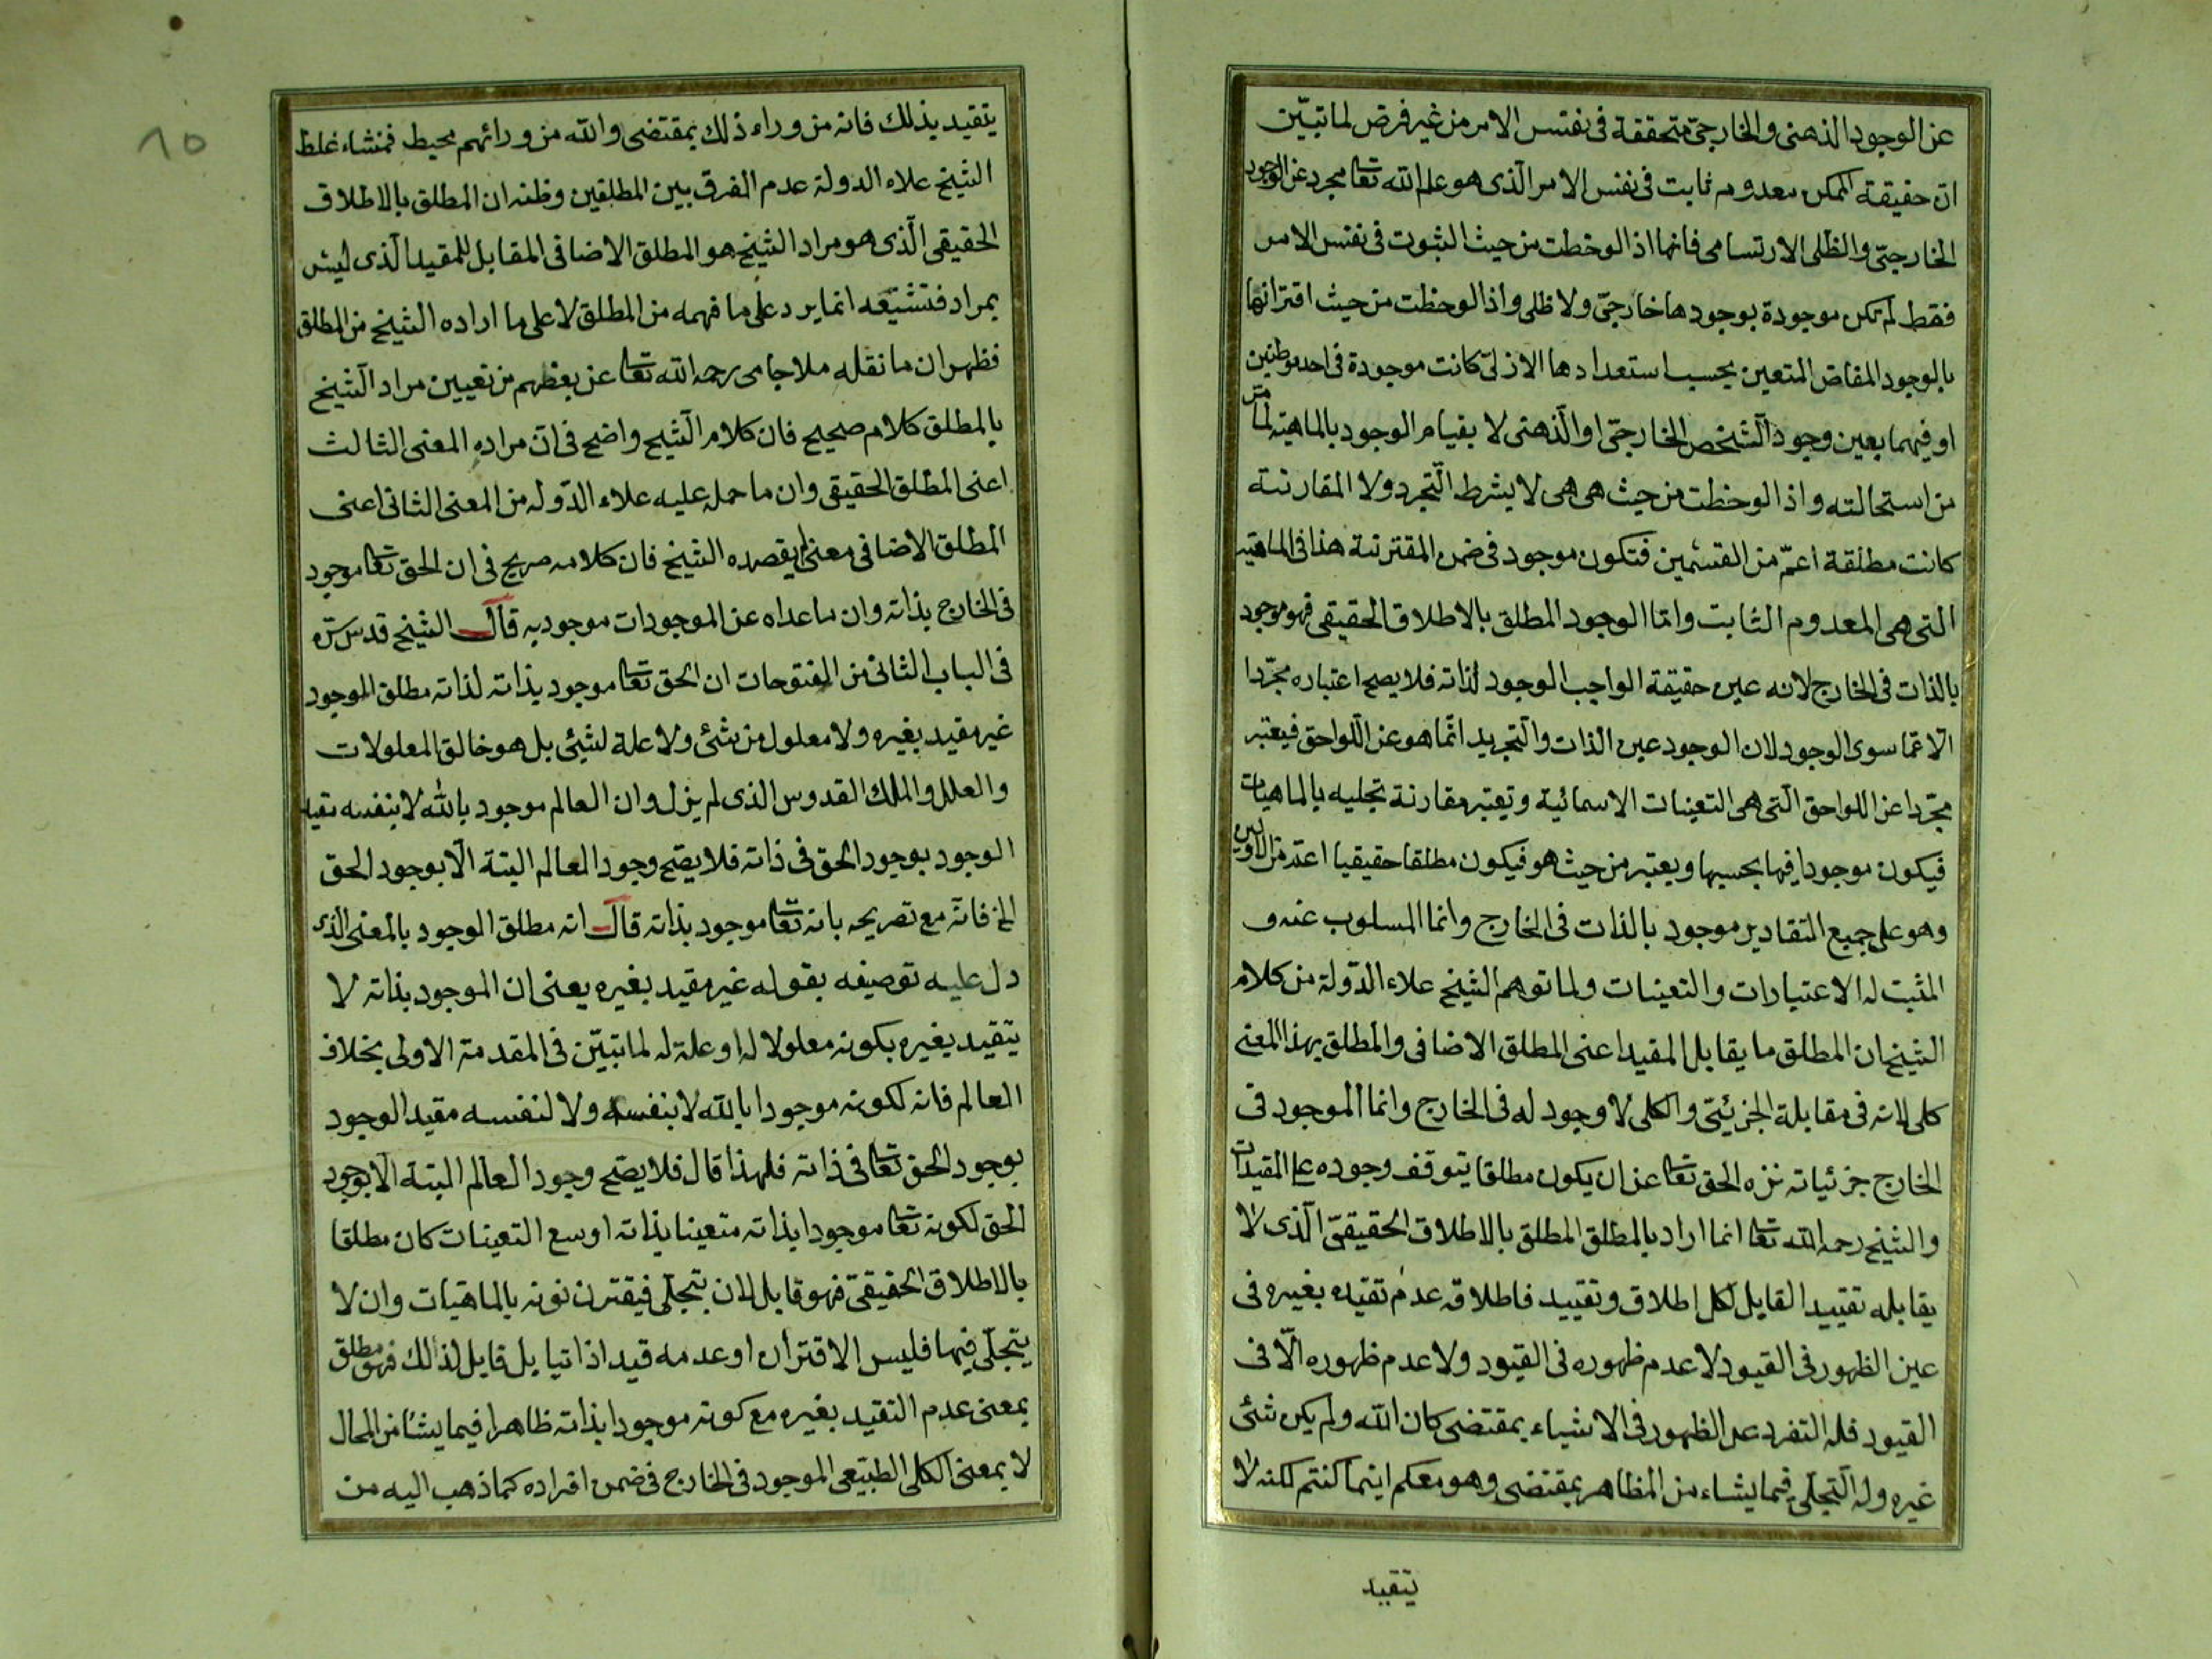 عن الوجود الذهنى والخارجىّ متحققة فى نفس الامر من غير فرض لما تبيّن
انّ حقيقة الممكن معدوم ثابت فى نفس الامر الّذى هو علم الله تعا مجرد عن الوجود
الخارجىّ والظلى الارتسامى فانها اذا لوحظت من حيث الثبوت فى نفس الامر
فقط لم تكن موجودة بوجودها خارجىّ ولا ظلى واذا لوحظت من حيث اقترانها
بالوجود المفاض المتعين بحسب استعدادها الازلىّ كانت موجودة فى احد موطنين
او فيهما بعين وجود الشخص الخارجىّ او الّذهنى لا بقيام الوجود بالماهية لما مرّ
من استحالته واذا لوحظت من حيث هى هى لا بشرط التّجرد ولا المقارنة
كانت مطلقة اعمّ من القسمين فتكون موجود فى ضمن المقترنة هذا فى الماهية
التى هى المعدوم الثابت وامّا الوجود المطلق بالاطلاق الحقيقى فهو موجود
بالذات فى الخارج لانه عين حقيقة الواجب الوجود لذاته فلا يصح اعتباره مجرّدا
الّا عمّا سوى الوجود لان الوجود عين الذات والتّجريد انّما هو عن اللّواحق فيعتبر
مجرّدا عن اللواحق الّتى هى التعينات الاسمائية وتعتبر مقارنة تجليه بالماهيات
فيكون موجودا فيها بحسبها ويعتبر من حيث هو فيكون مطلقا حقيقيا اعتد من الاولين
وهو على جميع التقادير موجود بالذات فى الخارج وانما المسلوب عنه و
المثبت له الاعتبارات والتعينات ولما توهم الشيخ علاء الدّولة من كلام
الشيخ ان المطلق ما يقابل المقيد اعنى المطلق الاضافى والمطلق بهذا المعنى
كلى لانه فى مقابلة الجزئيّ والكلى لا وجود له فى الخارج وانما الموجود فى
الخارج جزئياته نزه الحق تعا عن ان يكون مطلقا يتوقف وجوده على المقيدات
والشيخ رحمه الله تعا انما اراد بالمطلق المطلق بالاطلاق الحقيقىّ الّذى لا
يقابله تقييد القابل لكل اطلاق وتقييد فاطلاقه عدم تقيده بغيره فى
عين الظهور فى القيود لا عدم ظهوره فى القيود ولا عدم ظهوره الّا فى
القيود فله التفرد عن الظهور فى الاشياء بمقتضى كان الله ولم يكن شئى
غيره وله التّجلّى فيما يشاء من المظاهر بمقتضى وهو معكم اينما كنتم لكنه لا
يتقيد
١٥
يتقيد بذلك فانه من وراء ذلك بمقتضى والله من ورائهم محيط فمنشاء غلط
الشيخ علاء الدولة عدم الفرق بين المطلقين وظنه ان المطلق بالاطلاق
الحقيقى الّذى هو مراد الشيخ هو المطلق الاضافى المقابل للمقيد الّذى ليس
بمراد فتشنيعه انما يرد على ما فهمه من المطلق لا على ما اراده الشيخ من المطلق
فظهر ان ما نقله ملا جامى رحمه الله تعا عن بعضهم من تعيين مراد الشيخ
بالمطلق كلام صحيح فان كلام الشيخ واضح فى انّ مراده المعنى الثالث
اعنى المطلق الحقيقى وان ما حمل عليه علاء الدّوله من المعنى الثانى اعنى
المطلق الاضافى معنى لم يقصده الشيخ فان كلامه صريح فى ان الحق تعا موجود
فى الخارج بذاته وان ما عداه عن الموجودات موجود به قال الشيخ قدس سره
فى الباب الثانى من الفتوحات ان الحق تعا موجود بذاته لذاته مطلق الوجود
غير مقيد بغيره ولا معلول من شئى ولا علة لشيئى بل هو خالق المعلولات
والعلل والملك القدوس الذى لم يزل وان العالم موجود بالله لا بنفسه تقيد
الوجود بوجود الحق فى ذاته فلا يصّح وجود العالم البتة الّا بوجود الحق
الخ فانّه مع تصريحه بانه تعا موجود بذاته قال انه مطلق الوجود بالمعنى الذى
دل عليه توصيفه بقوله غير مقيد بغيره يعنى ان الموجود بذاته لا
يتقيد بغيره بكونه معلولا له او علة له لما تبيّن فى المقدمة الاولى بخلاف
العالم فانه لكونه موجودا بالله لا بنفسه ولا لنفسه مقيد الوجود
بوجود الحق تعا فى ذاته فلهذا قال فلا يصّح وجود العالم البتة الّا بوجود
الحق لكونه تعا موجودا بذاته متعينا بذاته اوسع التعينات كان مطلقا
بالاطلاق الحقيقىّ فهو قابل لان يتجلّى فيقترن نونه بالماهيات وان لا
يتجلّى فيها فليس الاقتران او عدمه قيدا ذاتيا بل قابل لذالك فهو مطلق
بمعنى عدم التقيد بغيره مع كونه موجودا بذاته ظاهرا فيما يشا من المحال
لا بمعنى الكلى الطبيعى الموجود فى الخارج فى ضمن افراده كما ذهب اليه من